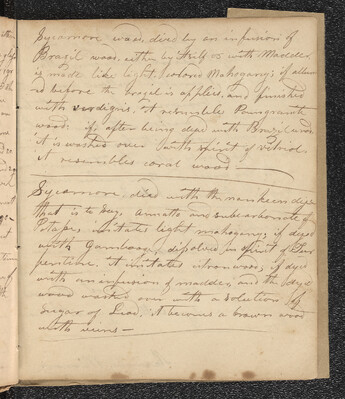 Sycamore wood, dived by an infusion of
Brazil wood, either by itself or with Madder
is made like light, colord Mahogany; if allum
is before the Brazil is applied, and finished
with verdigris, it resembles Pomgranate
wood; if after being dyed with Brazil wood
it is washed over with spirit of Vitriol
it resembles coral wood —
Sycamore, died with the nankeen dye
that is to say, Annatto and subcarbonate of
Potass, imitates light mahogany; if dyed
with Gamboge, disolved in spirit of Tur
pentine it imitates citron wood; if dyed
with an infusion of madder, and the dyed
wood washed over with a solution of
Sugar of Lead, it becomes a brown wood
with veins —